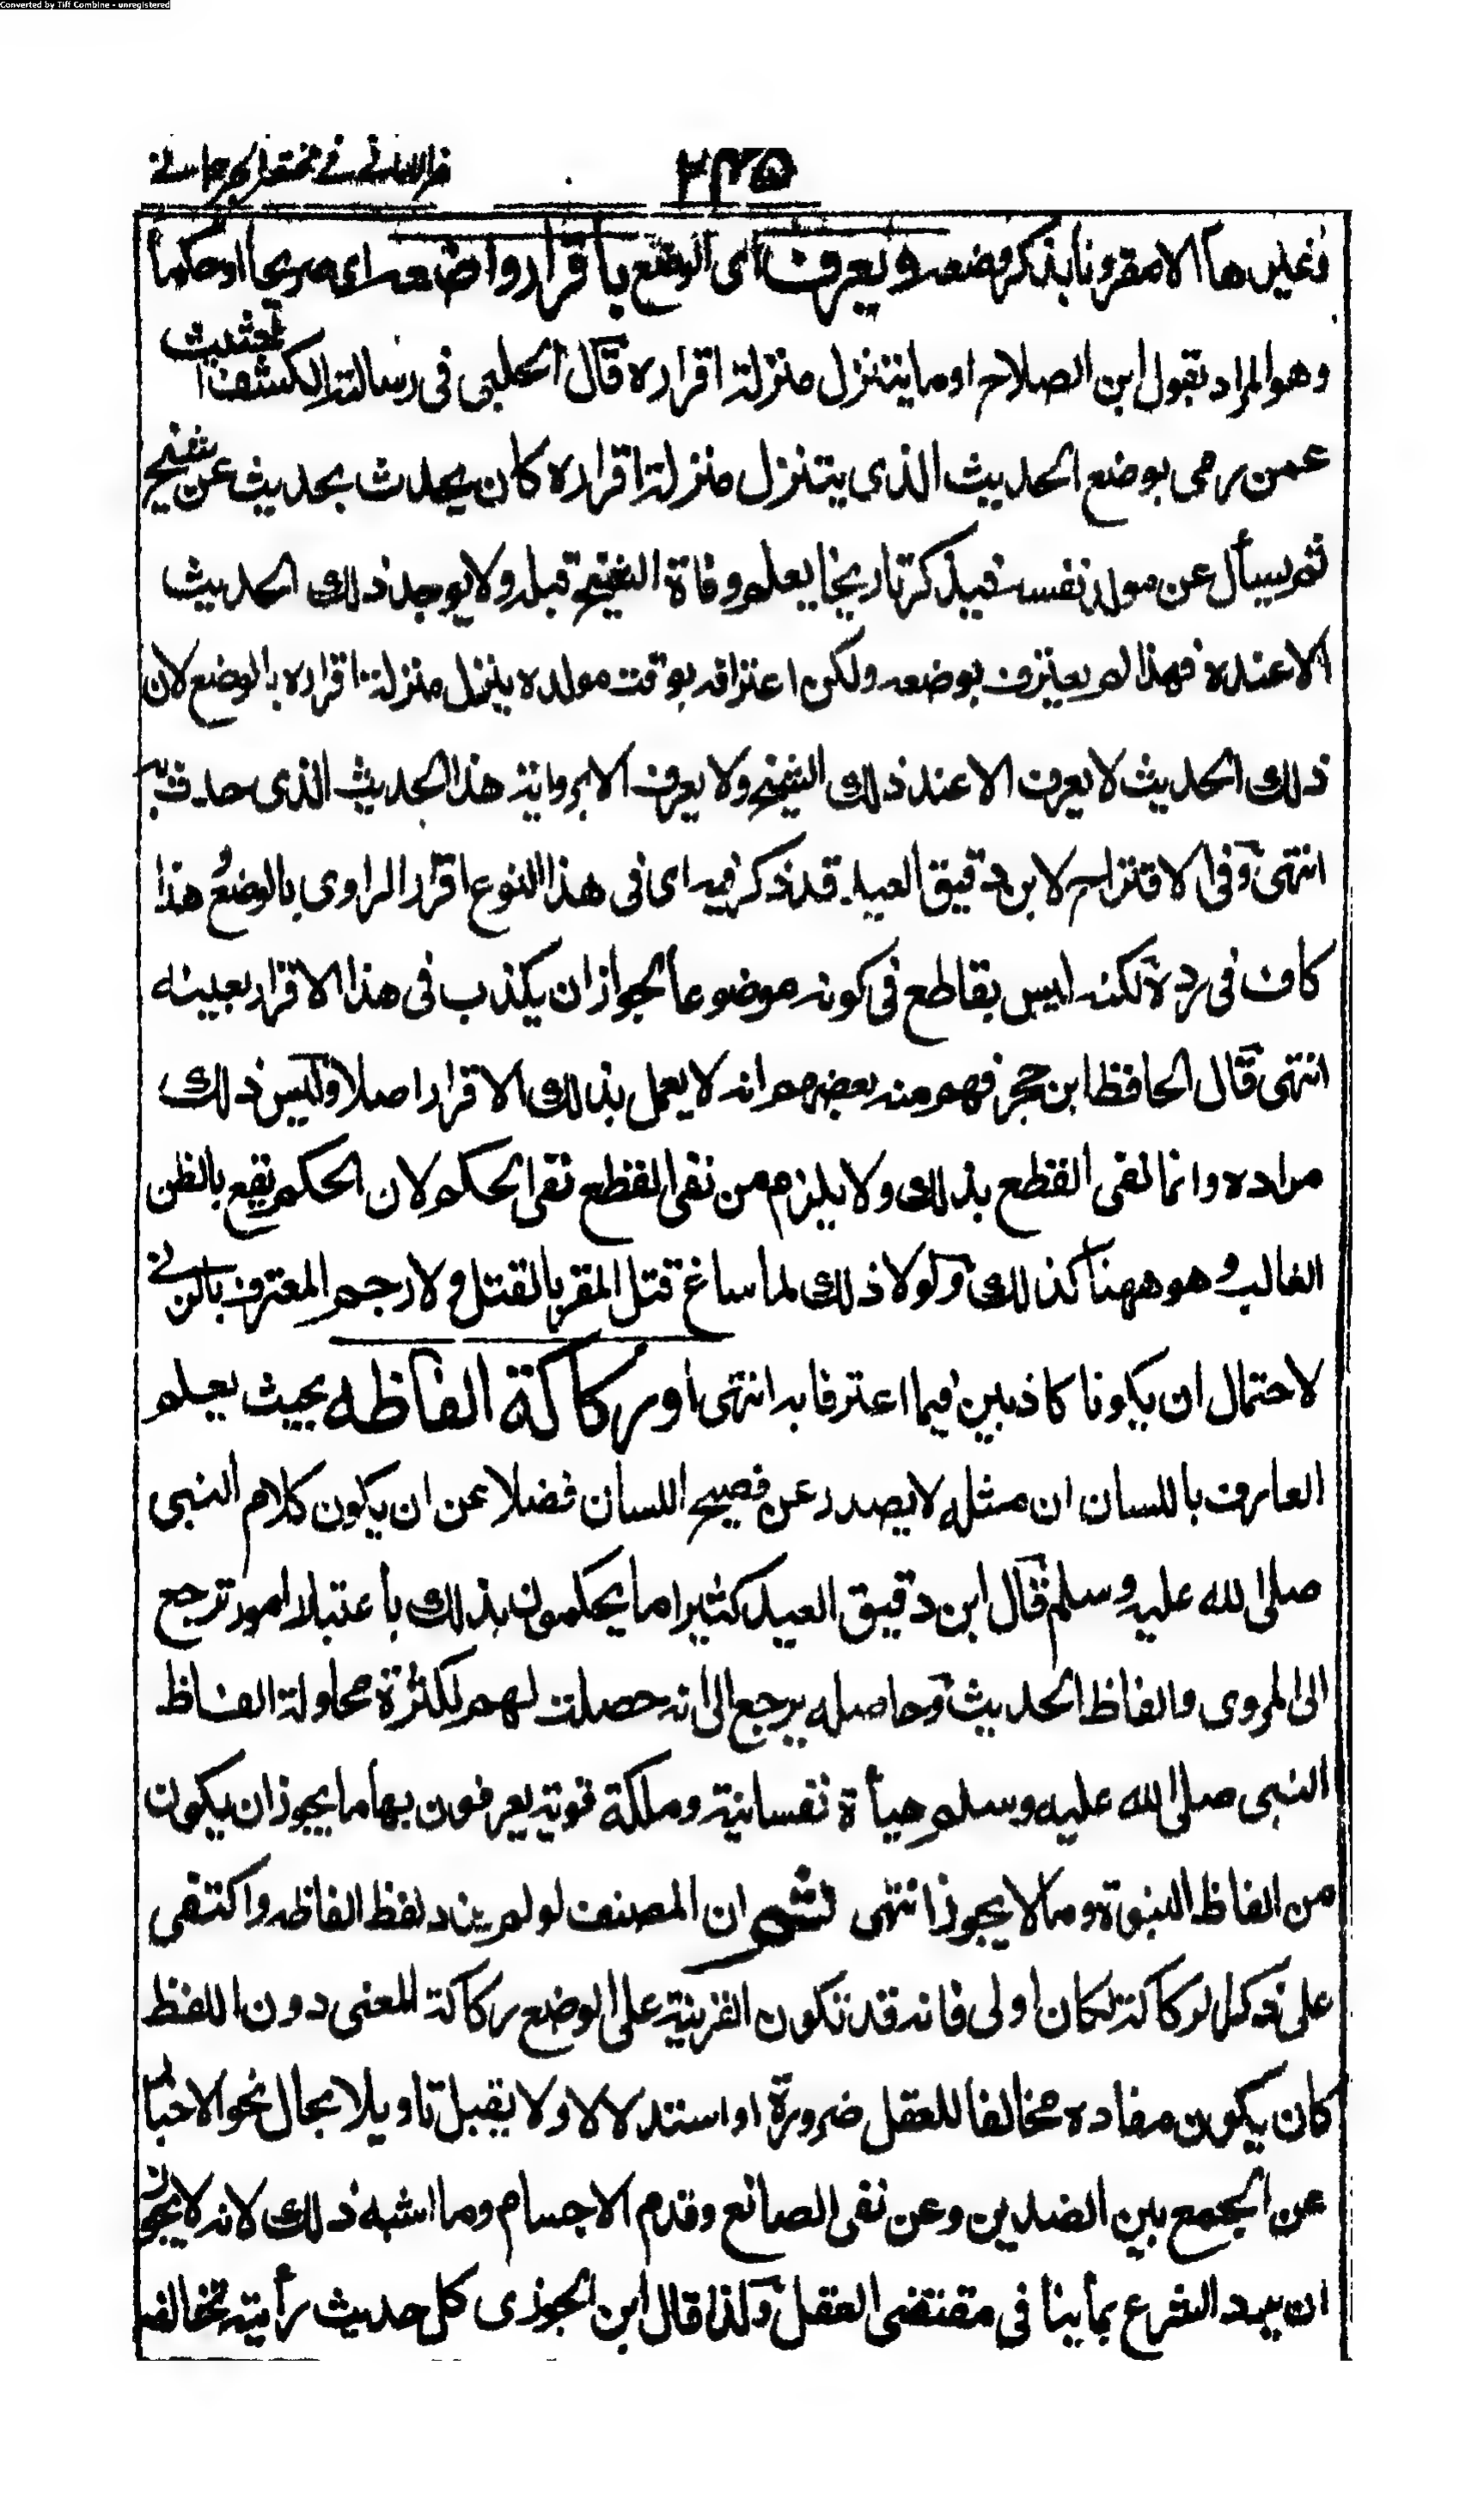 Converted by Tiff Combine - unregistered
ظفر الاماني في مختصر الجرجاني
٢٣٥
وغيرها الا مقرونا بذكر وضعه ويعرف اى الوضع باقرار واضعه اى صريحا او حكما
وهو المراد بقول ابن الصلاح او ما يتنزل منزلة اقراره قال الحلبى فى رسالته الكشف الحثيث
عمن رمى بوضع الحديث الذى يتنزل منزلة اقراره كان يحدث بحديث عن شيخ
ثم يسأل عن مولد نفسه فيذكر تاريخا يعلم وفاة الشيخ قبله ولا يوجد ذلك الحديث
الا عنده فهذا لم يعترف بوضعه ولكن اعترافه بوقت مولده ينزل منزلة اقراره بالوضع لان
ذلك الحديث لا يعرف الا عند ذلك الشيخ ولا يعرف الا برواية هذا الحديث الذى حدث به
انتهى وفى الاقتراح لابن دقيق العيد قد ذكر فيه اى فى هذا النوع اقرار الراوى بالوضع هذا
كاف فى رده لكنه ليس بقاطع فى كونه موضوعا لجواز ان يكذب فى هذا الاقرار بعينه
انتهى قال الحافظ ابن حجر فهم منه بعضهم انه لا يعمل بذلك الاقرار اصلا وليس ذلك
مراده وانما نفى القطع بذلك ولا يلزم من نفى القطع نفى الحكم لان الحكم يقع بالظن
الغالب وهو ههنا كذلك ولولا ذلك لما ساغ قتل المقر بالقتل ولا رجم المعترف بالزنى
لاحتمال ان يكونا كاذبين فيما اعترفا به انتهى او ركاكة الفاظه بحيث يعلم
العارف باللسان ان مثله لا يصدر عن فصيح اللسان فضلا عن ان يكون كلام النبى
صلى الله عليه وسلم قال ابن دقيق العيد كثيرا ما يحكمون بذلك باعتبار امور ترجع
الى المروى والفاظ الحديث وحاصله يرجع الى انه حصلت لهم لكثرة محاولة الفاظ
النبى صلى الله عليه وسلم هيأة نفسانية وملكة قوية يعرفون بها ما يجوز ان يكون
من الفاظ النبوة وما لا يجوز انتهى ثم ان المصنف لو لم يزد لفظ الفاظه واكتفى
على ذكر الركاكة لكان اولى فانه قد تكون القرينة على الوضع ركاكة المعنى دون اللفظ
كان يكون مفاده مخالفا للعقل ضرورة او استدلالا ولا يقبل تاويلا بحال نحو الاخبار
عن الجمع بين الضدين وعن نفى الصانع وقدم الاجسام وما اشبه ذلك لانه لا يجوز
ان يرد الشرع بما ينافى مقتضى العقل ولذا قال ابن الجوزى كل حديث رأيته تخالفه